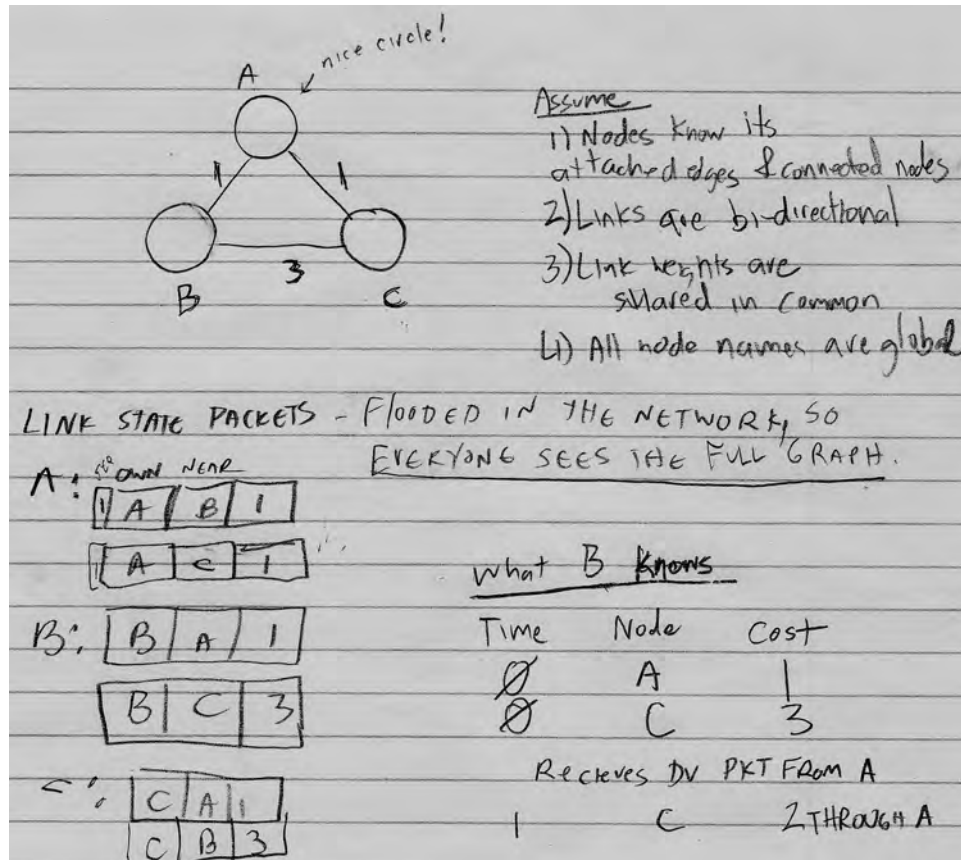 nice circle!
A
1 1
3
B C
Assume
1) Nodes know its
attached edges & connected nodes
2) Links are bi-directional
3) Link weights are
shared in common
4) All node names are global
LINK STATE PACKETS - FLOODED IN THE NETWORK, SO
EVERYONE SEES THE FULL GRAPH.
OWN NEAR
A: 1 A B 1
A C 1
B: B A 1
B C 3
C: C A 1
C B 3
What B Knows
Time Node Cost
0 A 1
0 C 3
Recieves DV PKT FROM A
1 C 2 THROUGH A